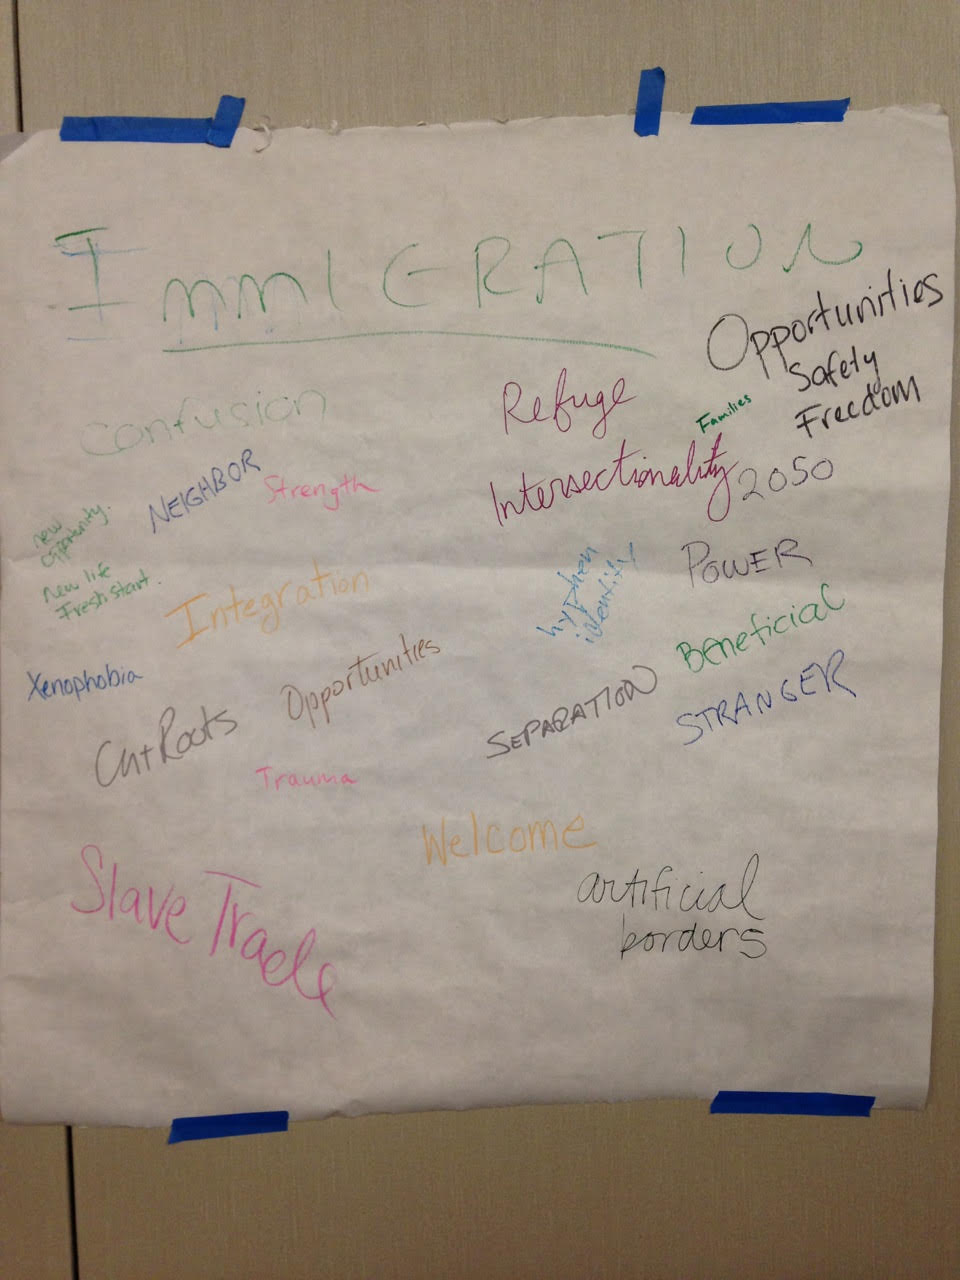 IMMIGRATION
Opportunities
Safety
Freedom
Refuge
Families
Confusion
NEIGHBOR
Strength
Intersectionality
2050
new
opportunity.
new life
Fresh start.
Integration
hyphen
identity
POWER
Beneficial
Xenophobia
Opportunities
SEPARATION
STRANGER
Cut Roots
Trauma
Welcome
Slave Trade
artificial
borders